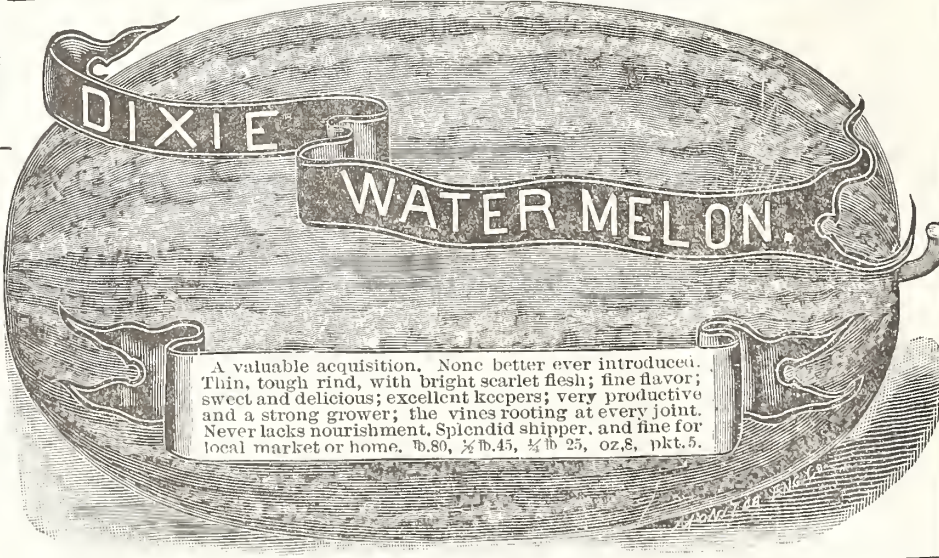 DIXIE
WATER MELON.
A valuable acquisition. None better ever introduced.
Thin, tough rind, with bright scarlet flesh; fine flavor;
sweet and delicious; excellent keepers; very productive
and a strong grower; the vines rooting at every joint.
Never lacks nourishment. Splendid shipper. and fine for
local market or home. ℔.80, ½℔.45, ¼℔ 25, oz,8, pkt.5.